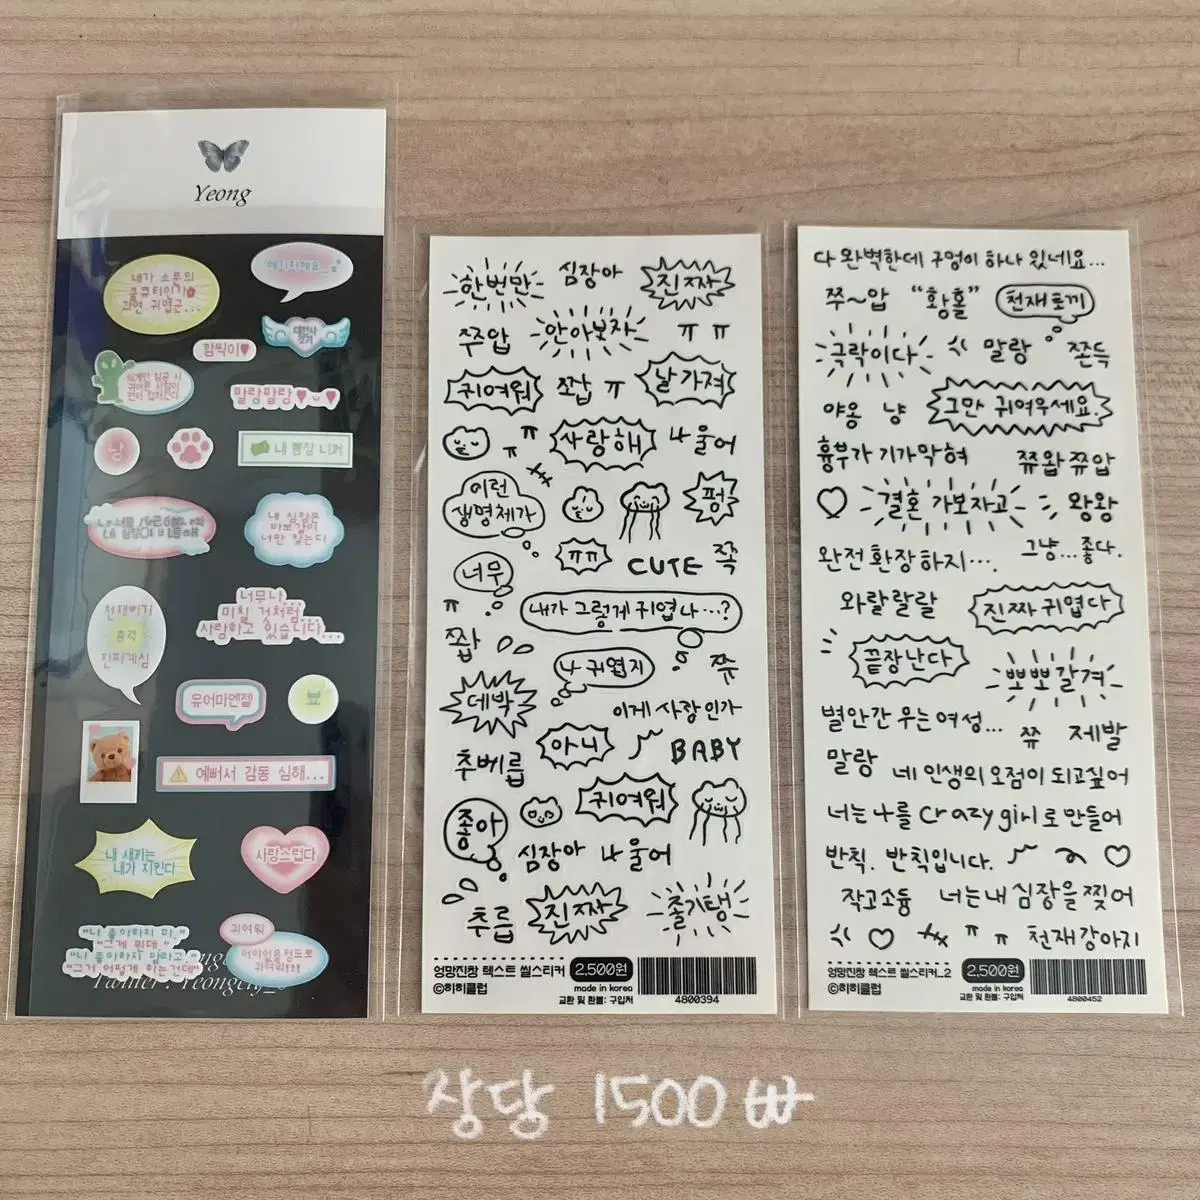 Yeong
네가 소문의
큐티인가
과연 귀엽군...
애기지께요_
깜찍이♥
대천사
찾기
말랑말랑♥ᴗ♥
냥
내 통장 니꺼
내 심장은
바보같이
너만 찾는다
너무나...
미칠 것처럼...
사랑하고 있습니다...
천재아기
충격
진짜계심
유어마엔젤
뽀
⚠ 예뻐서 감동 심해...
내 새끼는
내가 지킨다
사랑스럽다
"나 좋아하지 마."
"그게 뭔데."
"나 좋아하지 말라고."
"그거 어떻게 하는건데"
귀여워
어이없을정도로
귀여워!!!
한번만
심장아
진짜
쮸압
안아보자
ㅠㅠ
귀여워
쪼잡 ㅠ
날 가져
ㅠ
사랑해
나 울어
이런
생명체가
펑
너무
ㅠㅠ
CUTE
쪽
ㅠ
내가 그렇게 귀엽나...?
쨥
나 귀엽지
쮸
데박
이게 사랑인가
추베릅
아니
BABY
귀여워
좋아
심장아 나 울어
추릅
진짜
졸기탱
엉망진창 텍스트 씰스티커 2,500원
©히히클럽
made in korea
교환 및 환불: 구입처
4800394
다 완벽한데 구멍이 하나 있네요...
쮸~압 "황홀" 천재토끼
극락이다 말랑 쫀득
야옹 냥 그만 귀여우세요.
흉부가 기가막혀 쮸왑쮸압
♡ 결혼 가보자고 왕왕
완전 환장하지.... 그냥...좋다.
와랄랄랄 진짜 귀엽다
끝장난다 뽀뽀갈겨
별안간 우는 여성... 쮸 제발
말랑 네 인생의 오점이 되고싶어
너는 나를 crazy girl로 만들어
반칙. 반칙입니다. ♡
작고소듕 너는 내 심장을 찢어
♡ ㅠㅠ 천재강아지
엉망진창 텍스트 씰스티커_2 2,500원
©히히클럽
made in korea
교환 및 환불: 구입처
4800452
장당 1500₩